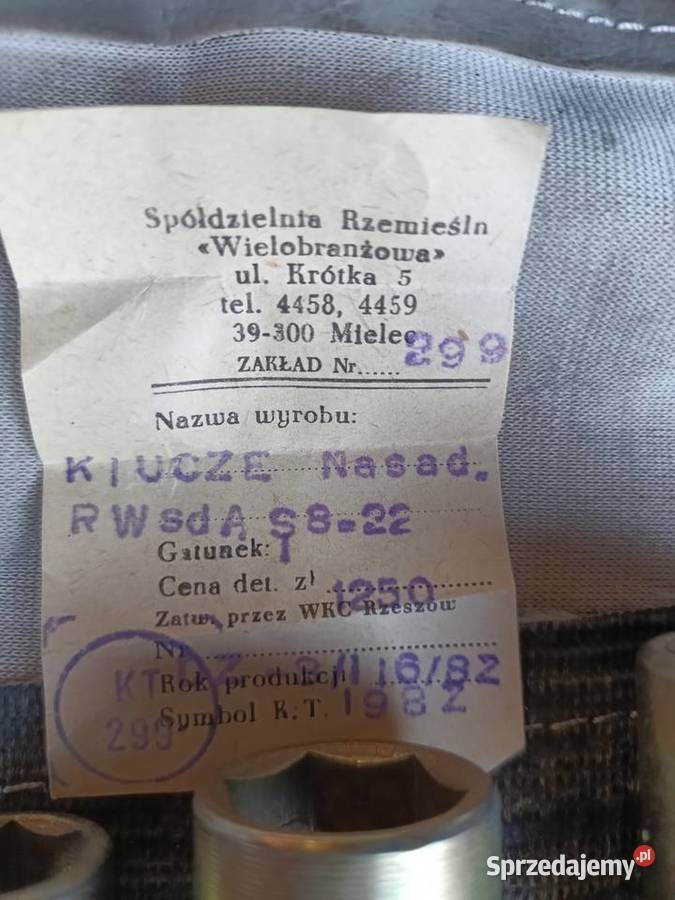 Spółdzielnia Rzemieśln
«Wielobranżowa»
ul. Krótka 5
tel. 4458, 4459
39-300 Mielec
ZAKŁAD Nr...... 299
Nazwa wyrobu:
KlUCZE Nasad.
RWsdA S8-22
Gatunek: I
Cena det. zł 1250
Zatw. przez WKC Rzeszów
Nr 2/116/82
Rok produkcji 1982
Symbol K.T.
KT
299
Sprzedajemy.pl